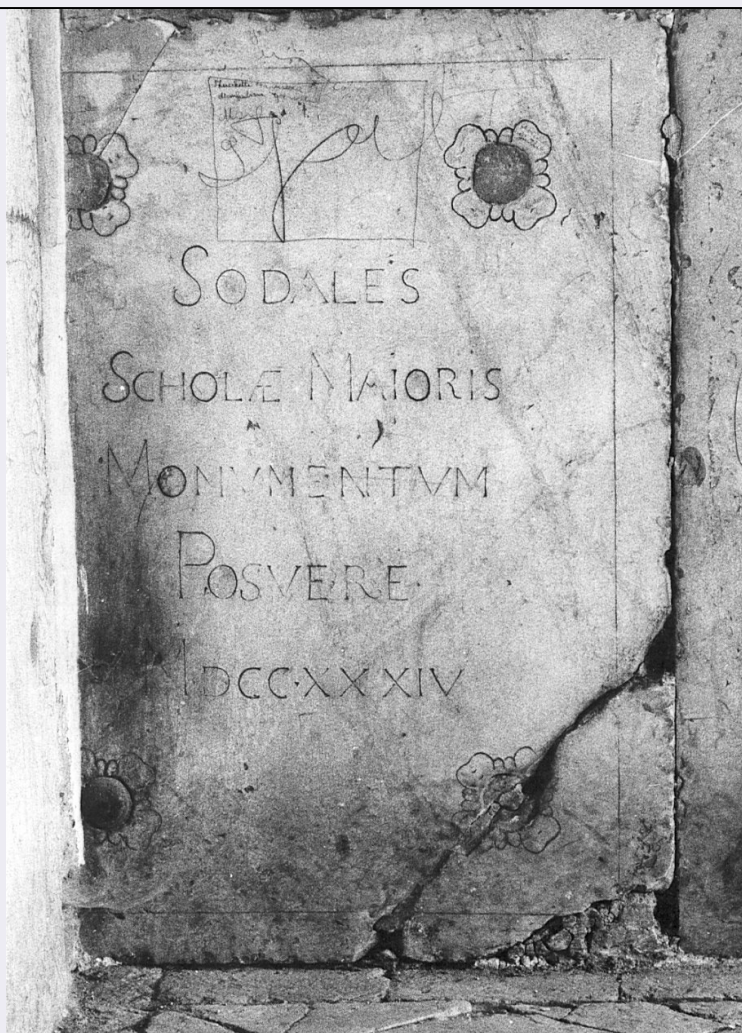 SODALES
SCHOLÆ MAIORIS
MONVMENTVM
POSVERE
MDCC·XXXIV